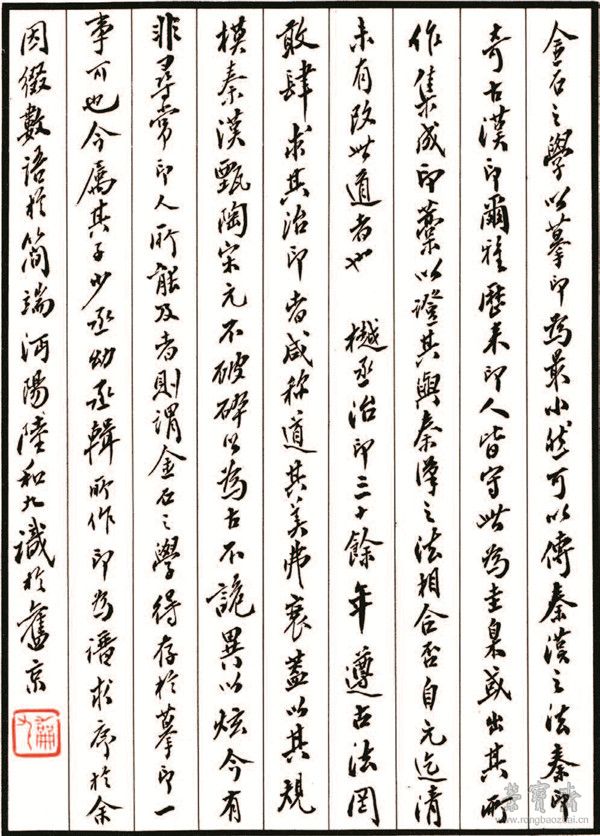 金石之學以摹印為最小然可以傳秦漢之法秦印
奇古漢印爾雅歷來印人皆守此為圭臬或出其所
作集成印藁以證其與秦漢之法相合否自元迄清
未有改此道者也 樾丞治印三十餘年遵古法罔
敢肆求其治印者咸称道其美弗衰蓋以其規
模秦漢甄陶宋元不破碎以為古不詭異以炫今有
非尋常印人所能及者則謂金石之學得存於摹印一
事可也今屬其子少丞幼丞輯所作印為譜求序於余
因綴數語於簡端沔陽陸和九識於舊京
榮寶齋
www.rongbaozhai.cn